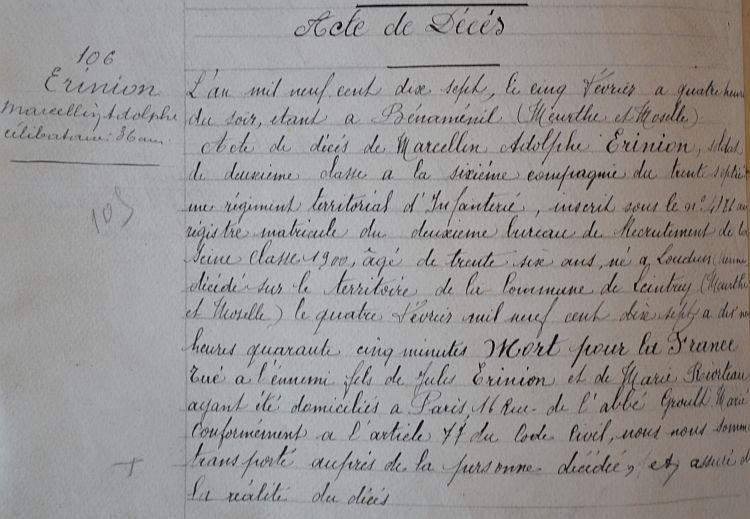 Acte de Décés
106
Erinion
Marcellin Adolphe
célibataire 36 ans
105
L'an mil neuf cent dix sept, le cinq Février a quatre heures
du soir, etant a Bénaménil (Meurthe et Moselle)
Acte de dicés de Marcellin Adolphe Erinion, soldat
de deuxième classe a la sixième compagnie du trente septiè
me régiment territorial d'Infanterie, inscrit sous le n° 4121 au
régistre matricule du deuxième bureau de Recrutement de la
Seine Classe 1900, âgé de trente six ans, né a Loudun
dicédé sur le territoire de la Commune de Leintrey (Meurthe
et Moselle) le quatre Février mil neuf cent dix sept a dix
heures quarante cinq minutes Mort pour la France
Tué a l'énnemi fils de Jules Erinion et de Marie
ayant été domiciliés a Paris 11 Rue de l'abbé Groult Marié
Conformément a l'article 77 du Code Civil, nous nous somme
transporté auprès de la personne dicédée, et assuré de
la réalité du dicés